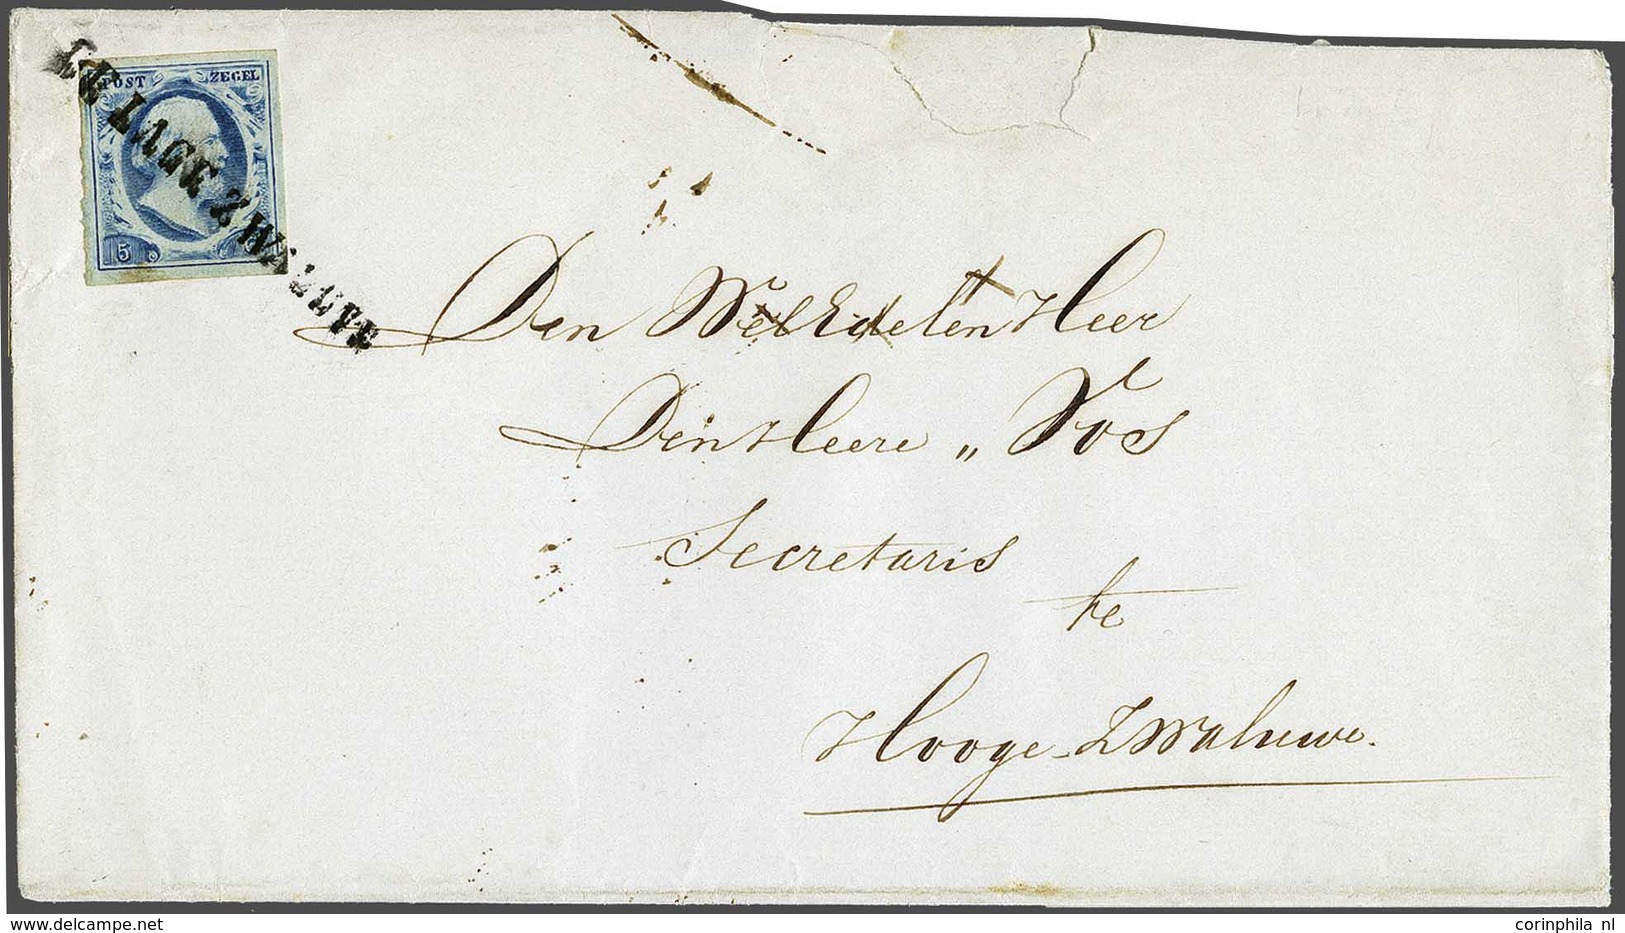 POST ZEGEL
5
LAGE ZWALUWE
Den WelEdelen Heer
Den Heere „ Vos
Secretaris
te
Hooge-Zwaluwe.
delcampe.net
corinphila nl